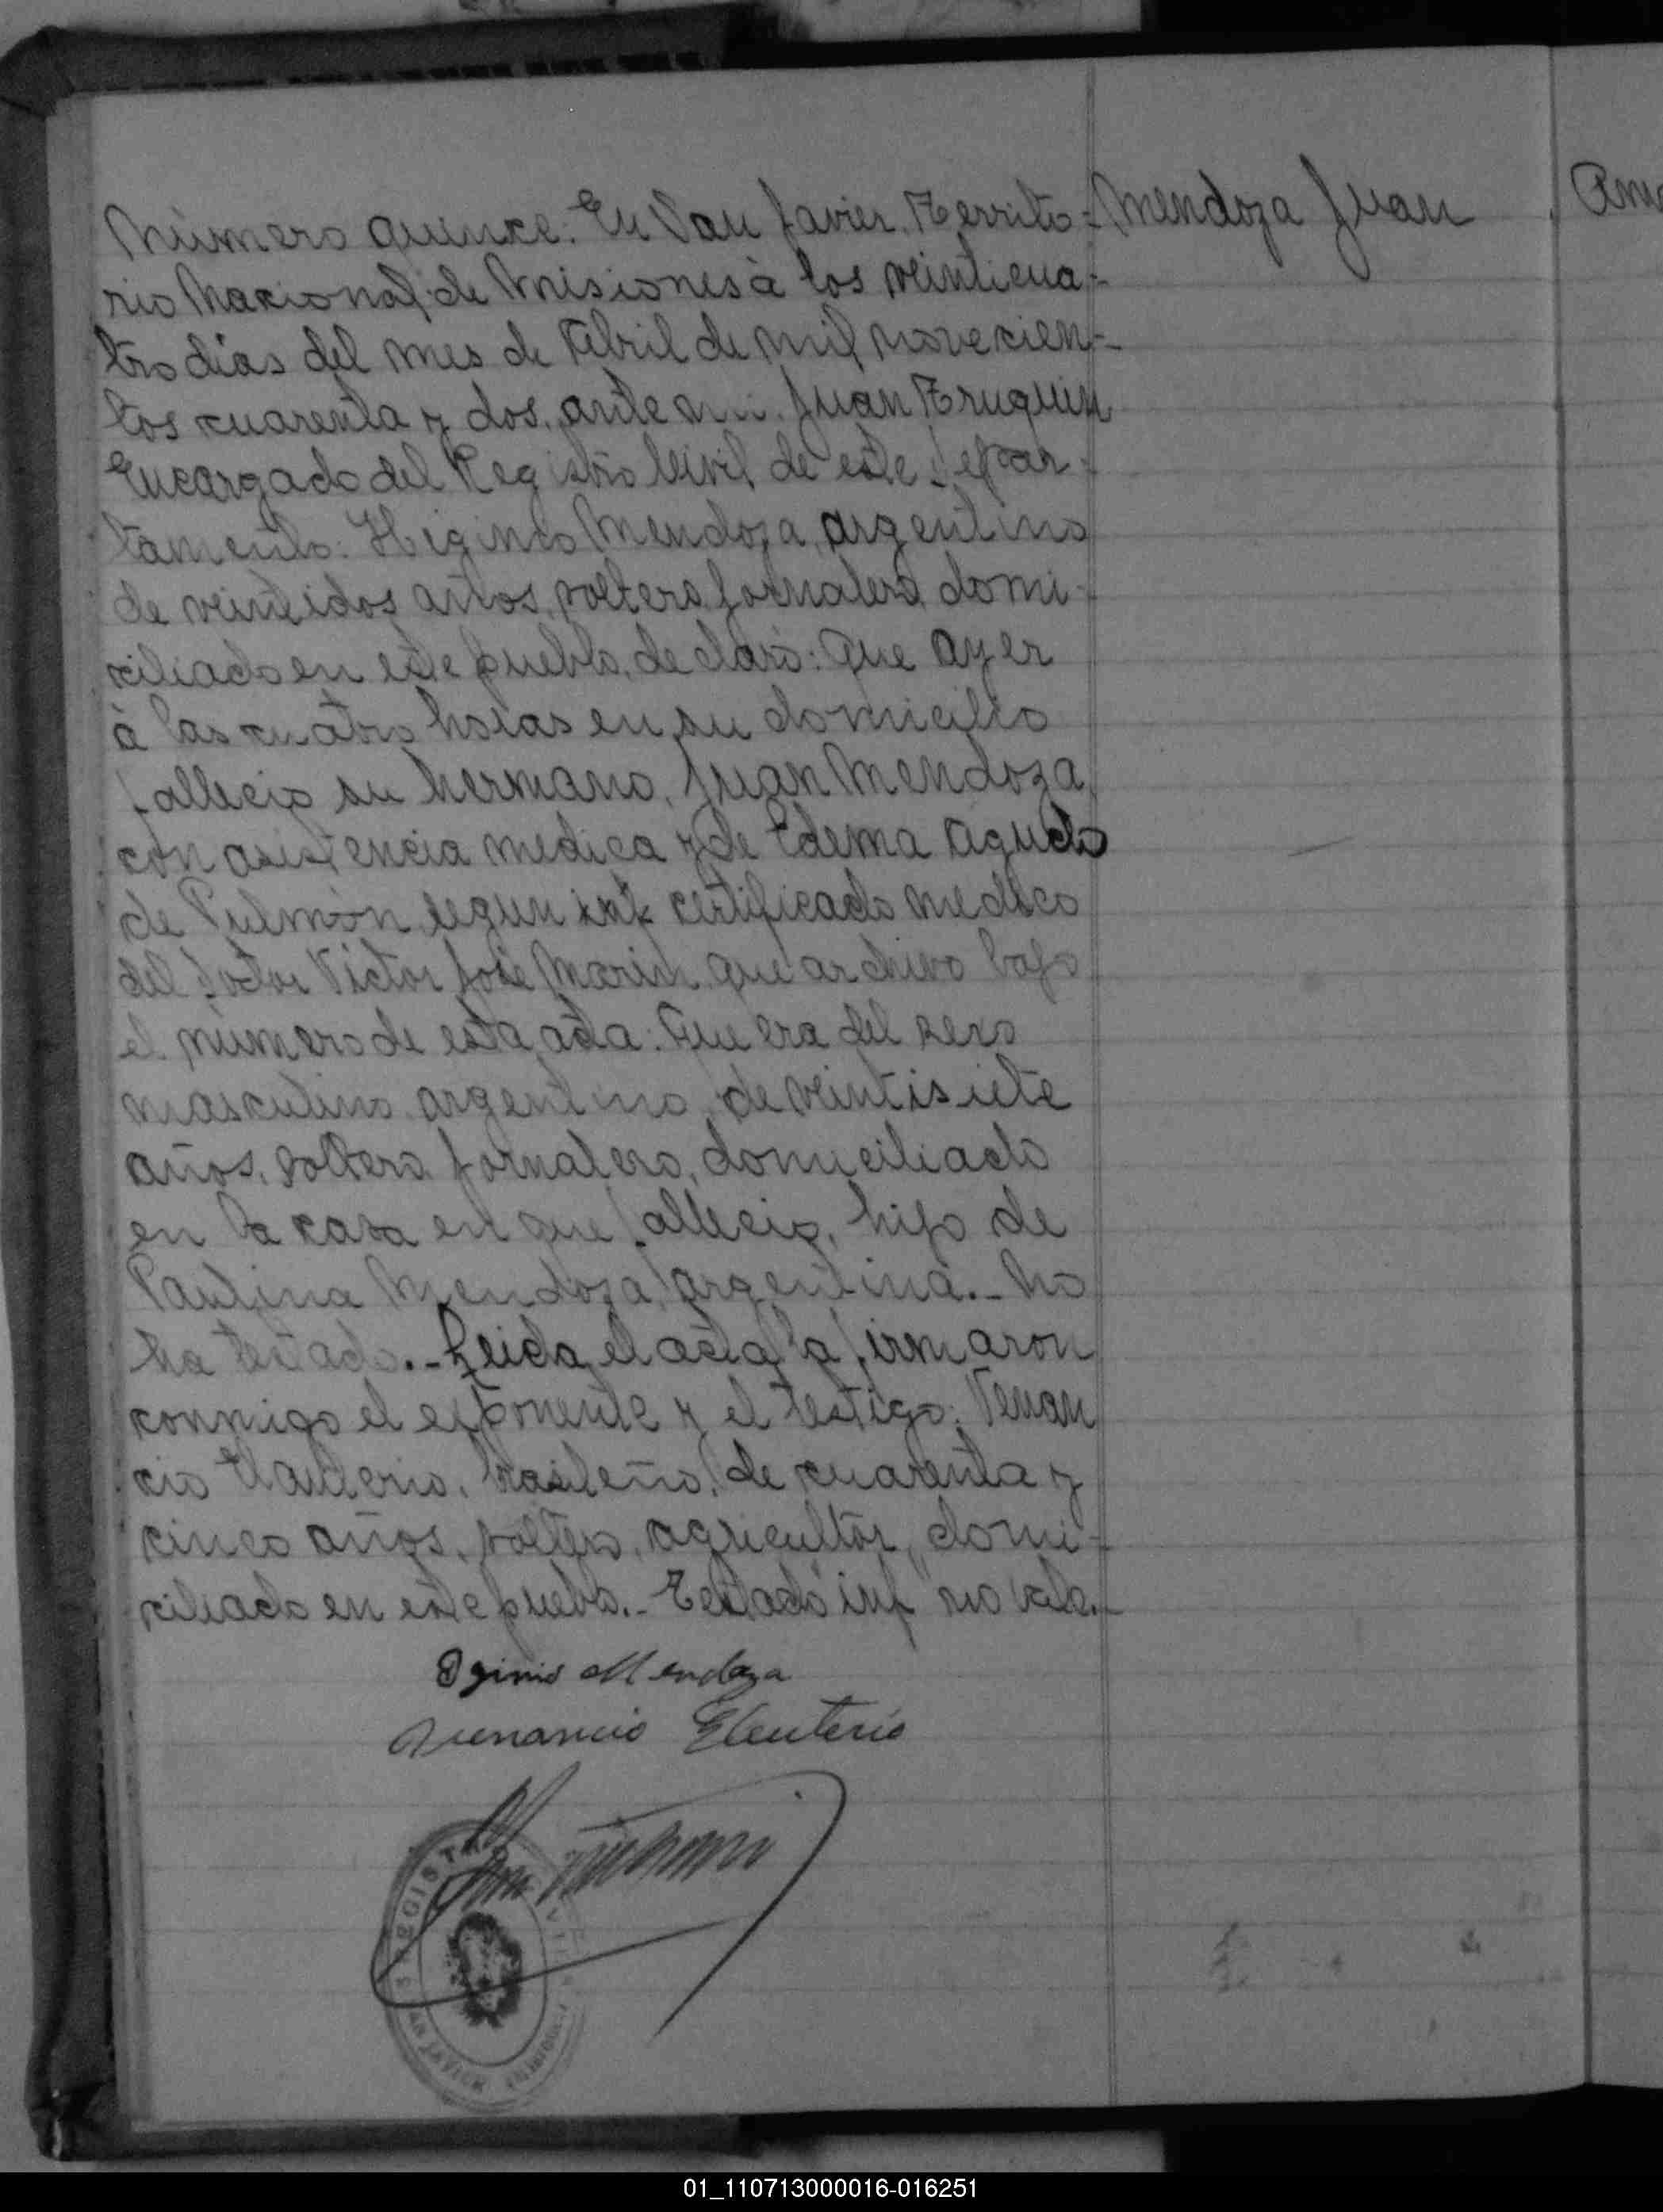 Número quince. En San Javier, Territo- Mendoza Juan
rio Nacional de Misiones à los veinticua-
tro días del mes de Abril de mil novecien-
tos cuarenta y dos, ante mi. Juan Truquin
Encargado del Registro Civil de este Depar-
tamento: Higinio Mendoza, argentino
de veintidos años, soltero, jornalero, domi-
ciliado en este pueblo, declaró: Que ayer
à las cuatro horas en su domicilio
fallecio su hermano, Juan Mendoza,
con asistencia medica y de Edema Agudo
de Pulmón, segun certificado medico
del Doctor Victor José Marin, que archivo bajo
el número de esta acta: Que era del sexo
masculino, argentino, de veintisiete
años, soltero, jornalero, domiciliado
en la casa en que fallecio, hijo de
Paulina Mendoza, argentina.- No
ha testado.- Leida el acta la firmaron
conmigo el exponente y el testigo: Venan
cio Eleuterio, brasileño, de cuarenta y
cinco años, soltero, agricultor, domi-
ciliado en este pueblo.- Testado "inf" no vale.-
Iginio Mendoza
Venancio Eleuterio
REGISTRO CIVIL
SAN JAVIER
01_110713000016-016251